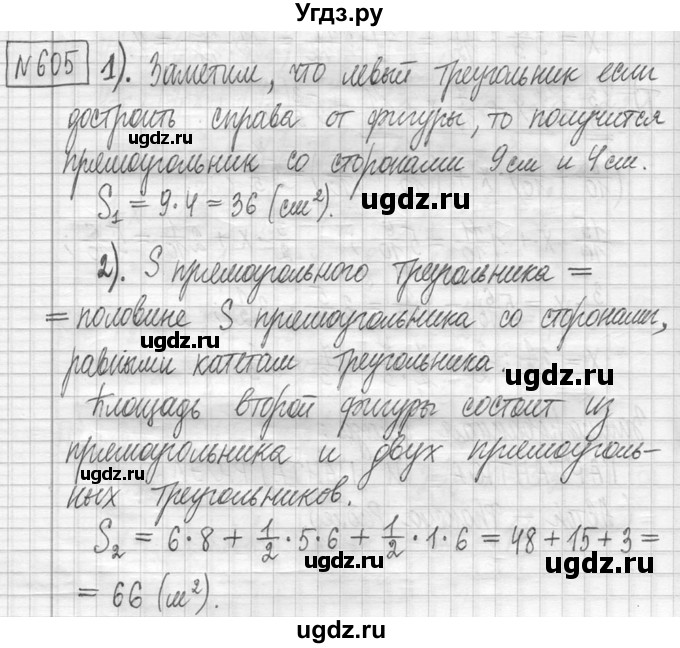 Угдз.ру
№605 1). Заметим, что левый треугольник если
достроить справа от фигуры, то получится
ugdz.ru ugdz.ru
прямоугольник со сторонами 9см и 4см.
S₁ = 9·4 = 36 (см²).
ugdz.ru
2). S прямоугольного треугольника =
= половине S прямоугольника со сторонами,
равными катетам треугольника.
ugdz.ru
Площадь второй фигуры состоит из
прямоугольника и двух прямоуголь-
ugdz.ru
ных треугольников.
S₂ = 6·8 + 1/2·5·6 + 1/2·1·6 = 48+15+3=
ugdz.ru ugdz.ru
= 66 (м²).
ugdz.ru